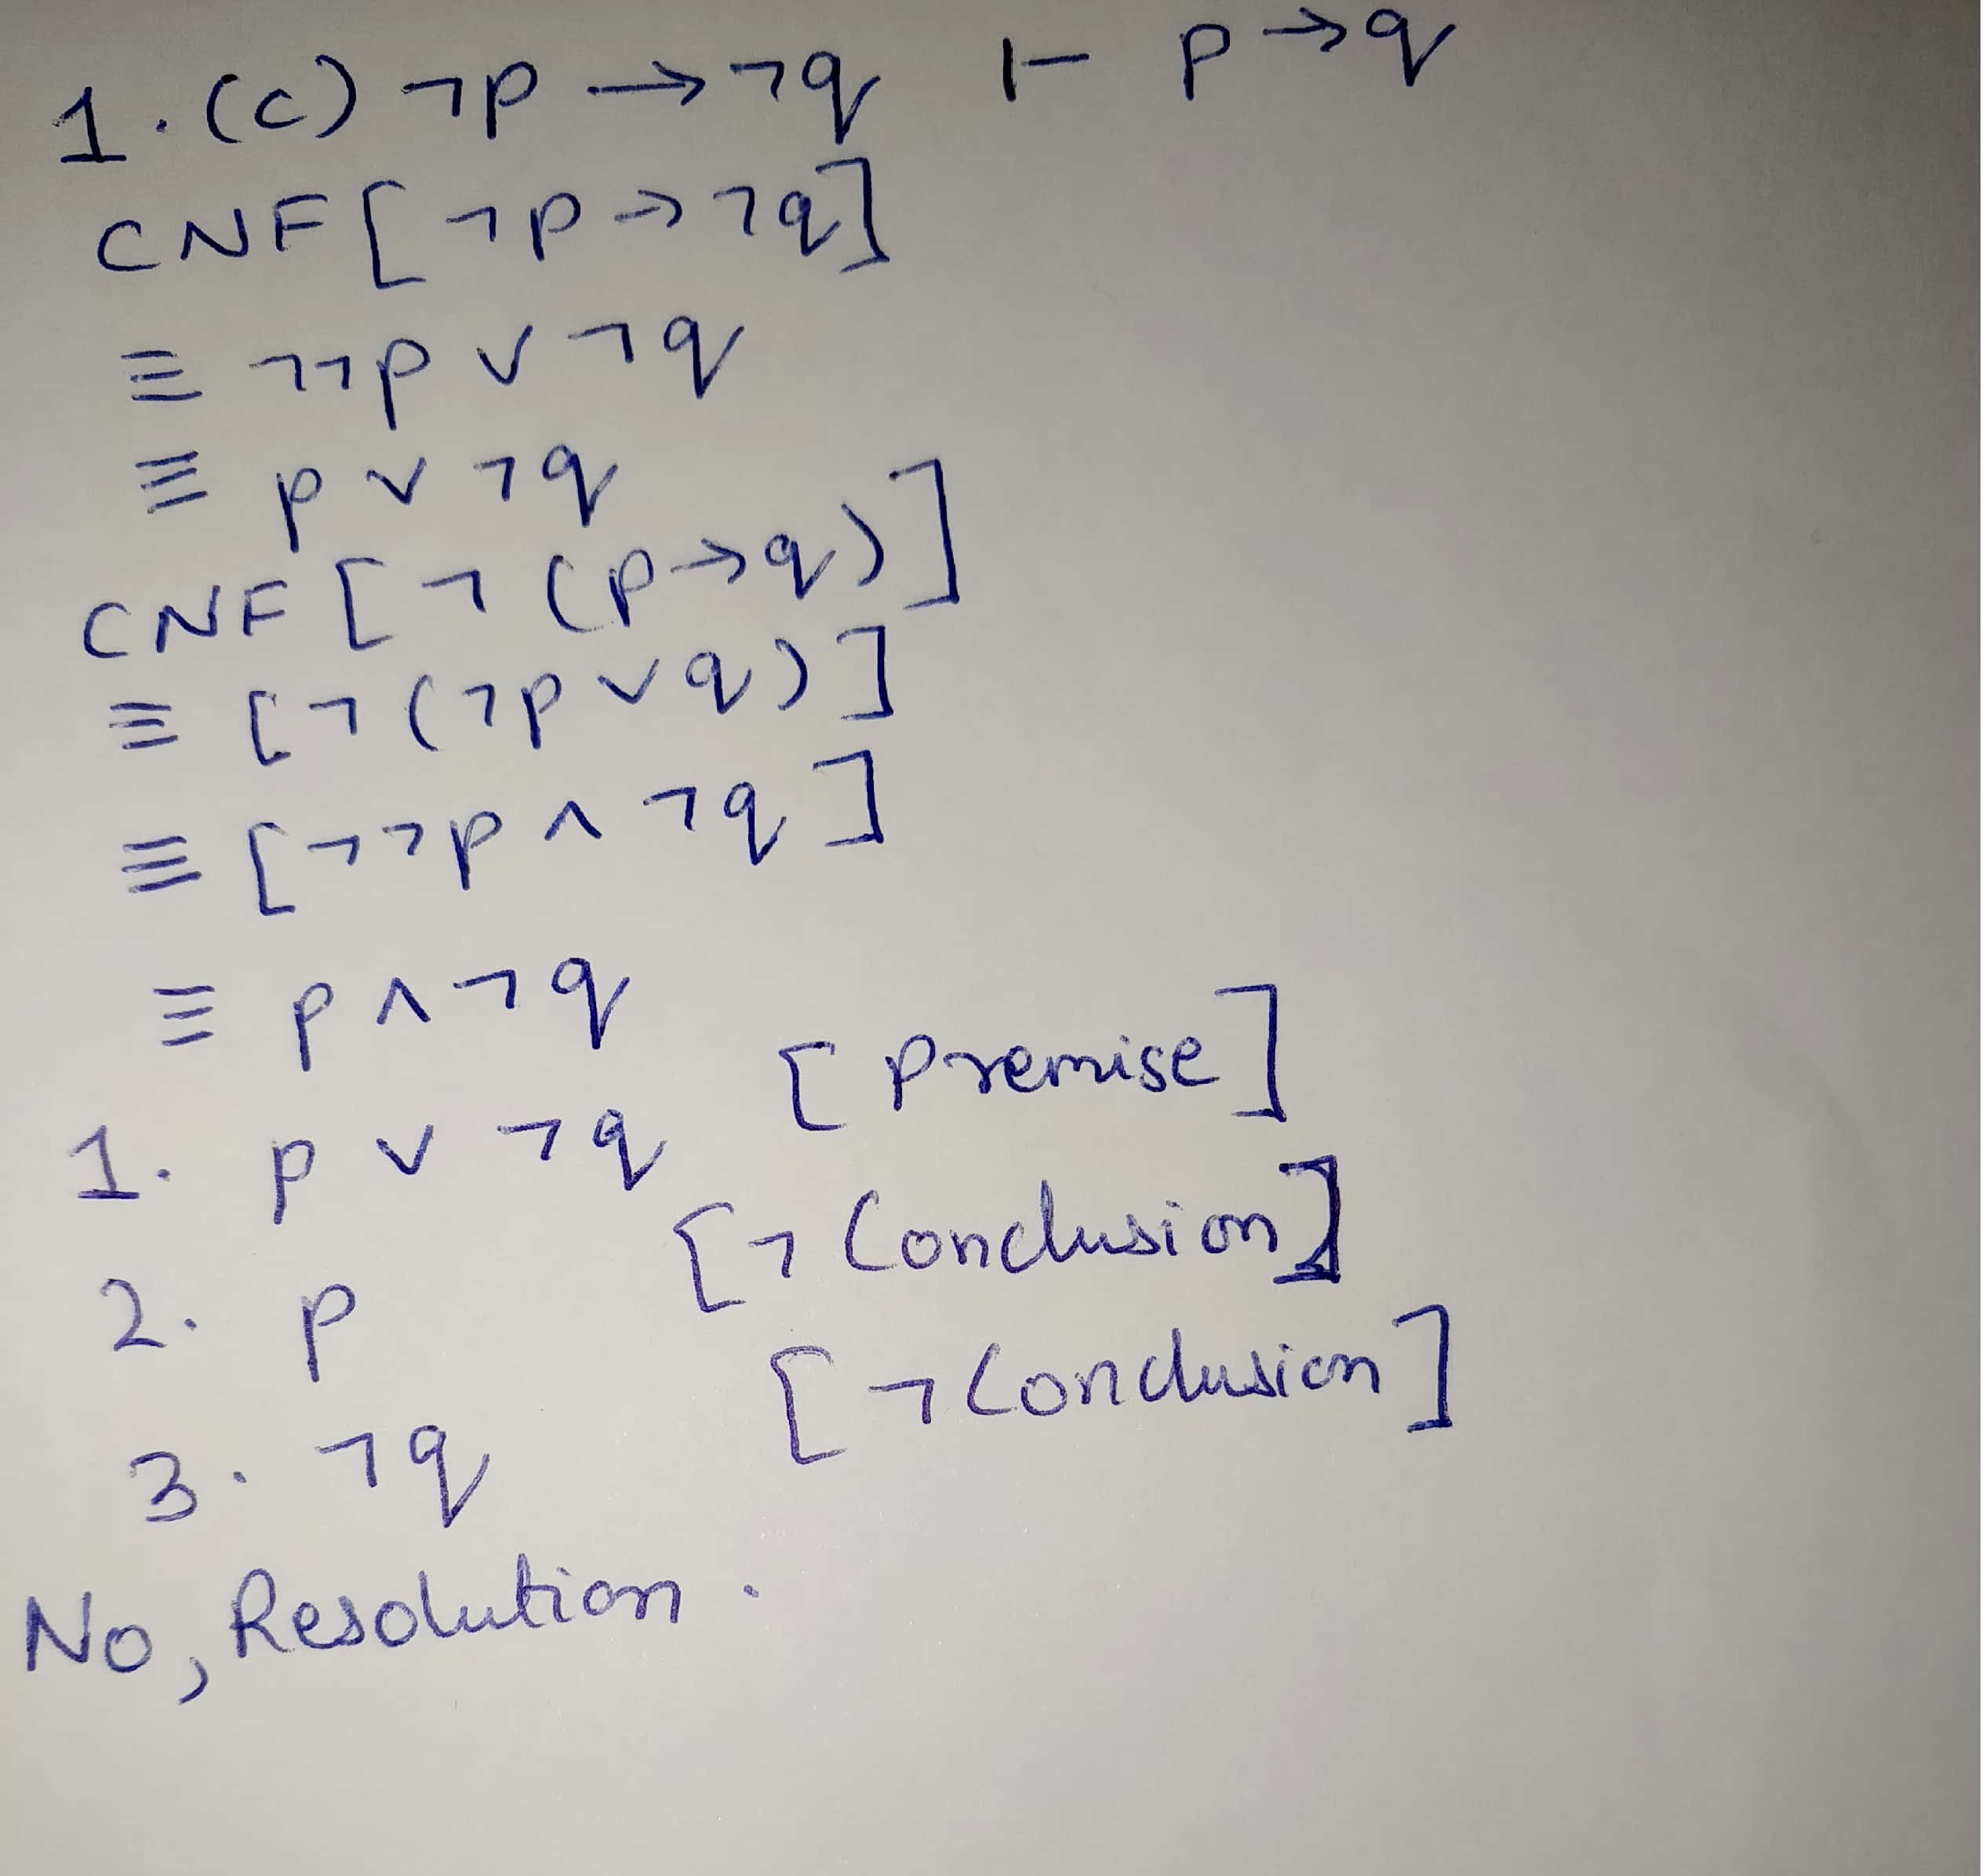 1.(c) ¬p → ¬q ⊢ p → q
CNF[¬p → ¬q]
≡ ¬¬p ∨ ¬q
≡ p ∨ ¬q
CNF[¬(p → q)]
≡ [¬(¬p ∨ q)]
≡ [¬¬p ∧ ¬q]
≡ p ∧ ¬q
1. p ∨ ¬q [Premise]
2. p [¬Conclusion]
3. ¬q [¬Conclusion]
No, Resolution.